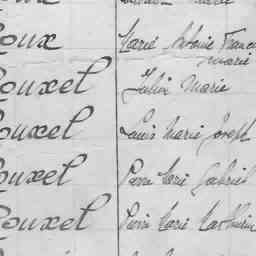 Roux Marie Antonie Franco
Marie
Rouxel Julien Marie
Rouxel Louis Marie Joseph
Rouxel Pierre Marie Gabriel
Rouxel Pierre Marie Mathurin